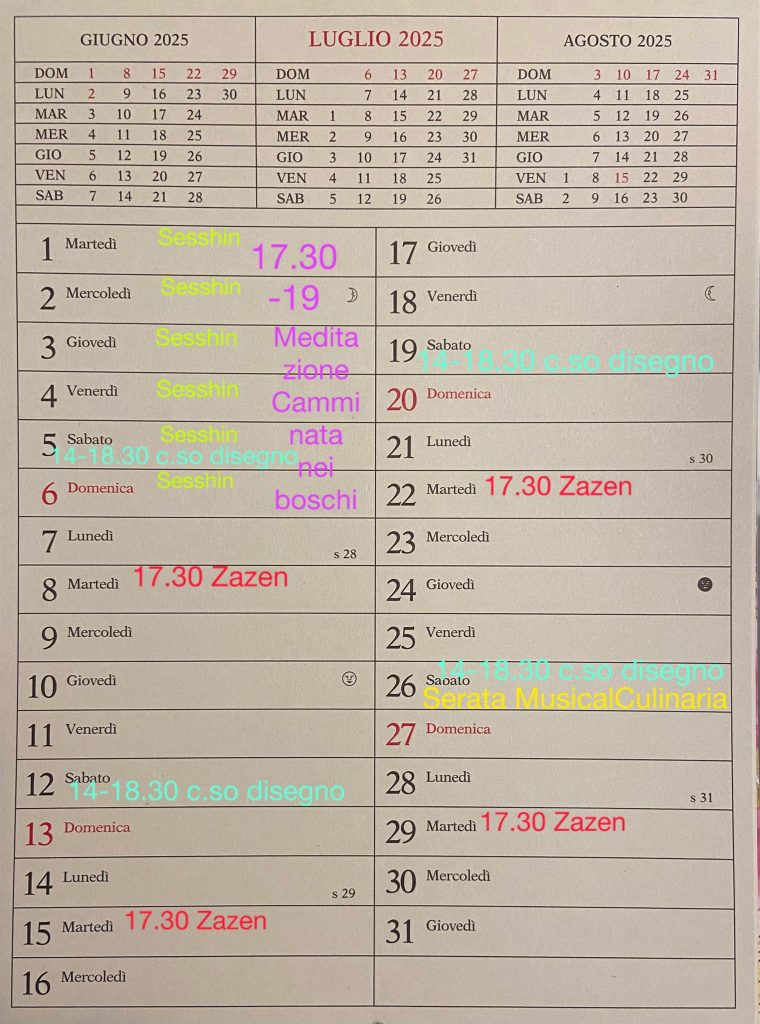 GIUGNO 2025
DOM 1 8 15 22 29
LUN 2 9 16 23 30
MAR 3 10 17 24
MER 4 11 18 25
GIO 5 12 19 26
VEN 6 13 20 27
SAB 7 14 21 28
LUGLIO 2025
DOM 6 13 20 27
LUN 7 14 21 28
MAR 1 8 15 22 29
MER 2 9 16 23 30
GIO 3 10 17 24 31
VEN 4 11 18 25
SAB 5 12 19 26
AGOSTO 2025
DOM 3 10 17 24 31
LUN 4 11 18 25
MAR 5 12 19 26
MER 6 13 20 27
GIO 7 14 21 28
VEN 1 8 15 22 29
SAB 2 9 16 23 30
1 Martedì Sesshin
2 Mercoledì Sesshin
3 Giovedì Sesshin
4 Venerdì Sesshin
5 Sabato Sesshin
14-18.30 c.so disegno
6 Domenica Sesshin
17.30
-19
Medita
zione
Cammi
nata
nei
boschi
7 Lunedì s 28
8 Martedì 17.30 Zazen
9 Mercoledì
10 Giovedì
11 Venerdì
12 Sabato
14-18.30 c.so disegno
13 Domenica
14 Lunedì s 29
15 Martedì 17.30 Zazen
16 Mercoledì
17 Giovedì
18 Venerdì
19 Sabato
14-18.30 c.so disegno
20 Domenica
21 Lunedì s 30
22 Martedì 17.30 Zazen
23 Mercoledì
24 Giovedì
25 Venerdì
14-18.30 c.so disegno
26 Sabato
Serata MusicalCulinaria
27 Domenica
28 Lunedì s 31
29 Martedì 17.30 Zazen
30 Mercoledì
31 Giovedì